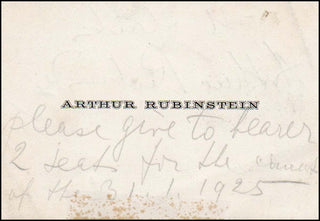 ARTHUR RUBINSTEIN
please give to bearer
2 seats for the concert
of the 31.1.1925